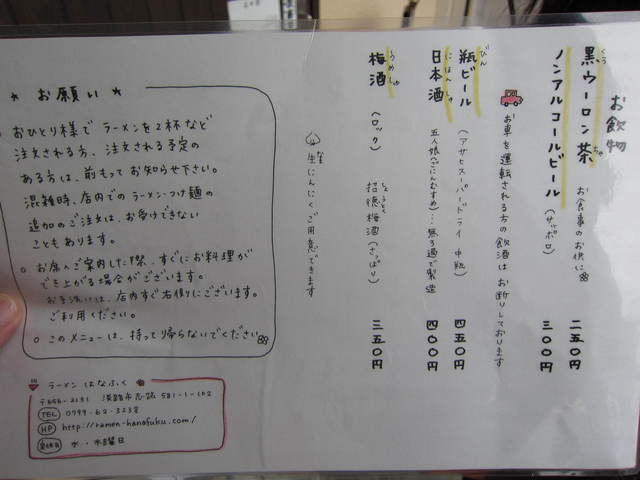 お飲物
黒ウーロン茶 お食事のお供に 二五〇円
ノンアルコールビール (サッポロ) 三〇〇円
お車を運転される方の飲酒はお断りしております
瓶ビール (アサヒスーパードライ 中瓶) 四五〇円
日本酒 五人娘(ごにんむすめ)…無ろ過で製造 四〇〇円
梅酒 (ロック) 招徳梅酒(さっぱり) 三五〇円
生にんにくご用意できます
お願い
おひとり様でラーメンを2杯など
注文される方、注文される予定の
ある方は、前もってお知らせ下さい。
混雑時、店内でのラーメン・つけ麺の
追加のご注文は、お受けできない
こともあります。
お席へご案内した際、すぐにお料理が
でき上がる場合がございます。
お手洗いは、店内すぐ右側にございます。
ご利用ください。
このメニューは、持って帰らないでください
ラーメン はなふく
〒656-2131 淡路市志筑 581-1-102
TEL 0799-62-3238
HP http://ramen-hanafuku.com/
定休日 水・木曜日